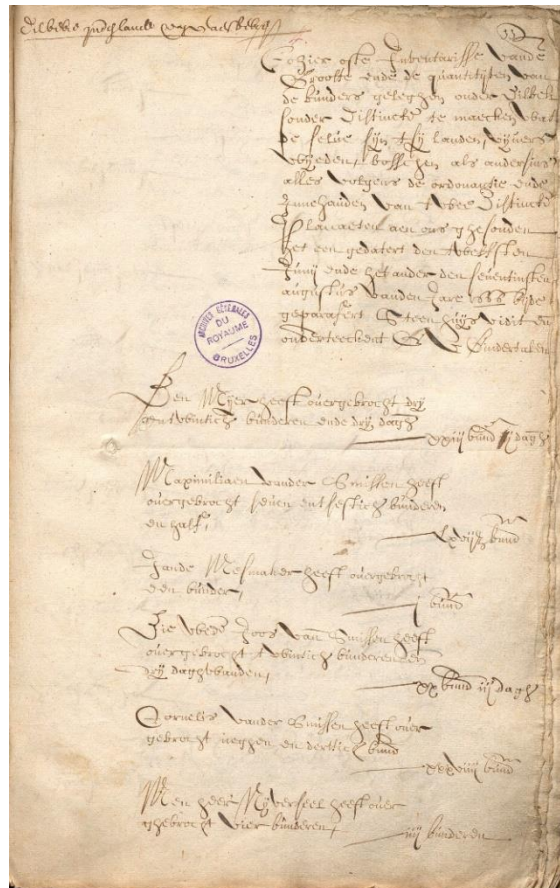 Dilbeke
Cohier ofte Inventarisse vande
Grootte ende de quantiteyten van
de bunders geleghen onder Dilbeke
sonder Distinctie te maecken wat
de selve syn tsy landen, vyvers
weyden, bosschen als andersins
alles volgens de ordonantie ende
Innehouden van twee Distincte
Placaeten aen ons ghesonden
het een gedatert den twelfsten
Junij ende het ander den seventinsten
augustus vanden Jare 1666 byde
geparafert Steenhuys vidit en
onderteeckent
ARCHIVES GÉNÉRALES
DU
ROYAUME
BRUXELLES
Den Myer heeft overgebrocht dry
entwintich bunderen ende dry dagh
xxiij bund iij dagh
Maximiliaen vander Smissen heeft
overgebrocht seven entsestich bunderen
en half,
bund
Jande Mesmaker heeft overgebrocht
een bunder,
j bund
Die wede Joos van Smissen heeft
overgebrocht twintich bunderen en
dry daghwanden,
xx bund iij dagh
Cornelis vander Smissen heeft over
gebrocht neghen en dertich bund
xxxviiij bund
Men heer Myverseel heeft over
ghebrocht vier bunderen,
iiij bunderen